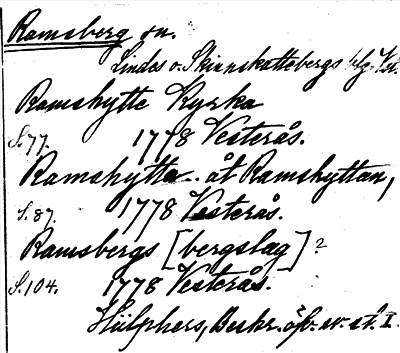 Ramsberg sn.
Lindes o. Skinnskattebergs blg. Vsl.
Ramshytte Kyrka
S. 77. 1778 Vesterås.
Ramshytta.. åt Ramshyttan,
S. 87. 1778 Vesterås.
Ramsbergs [bergslag]?
S. 104. 1778 Vesterås.
Hülphers, Beskr. öfv. sv. st. I.